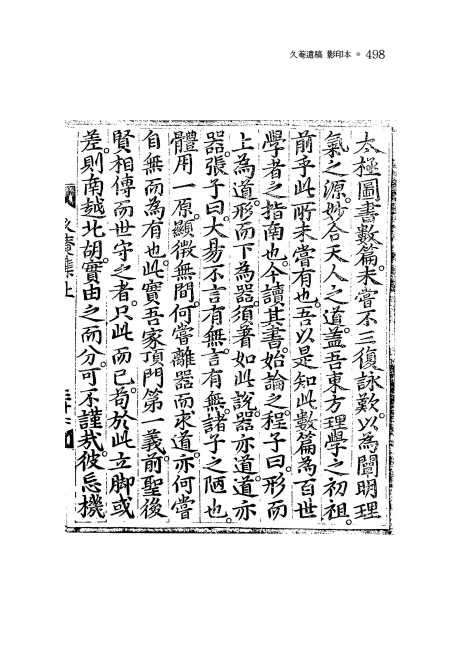 久菴遺稿 影印本 • 498
太極圖書數篇。未嘗不三復詠歎。以為闡明理
氣之源。妙合天人之道。盖吾東方理學之初祖。
前乎此所未嘗有也。吾以是知此數篇為百世
學者之指南也。今讀其書。始論之。程子曰。形而
上為道。形而下為器。須著如此說。器亦道。道亦
器。張子曰。大易不言有無。言有無。諸子之陋也。
體用一原。顯微無間。何嘗離器而求道。亦何嘗
自無而為有也。此實吾家頂門第一義。前聖後
賢相傳而世守之者。只此而已。苟於此立脚或
差。則南越北胡。實由之而分。可不謹哉。彼忘機
久菴集上